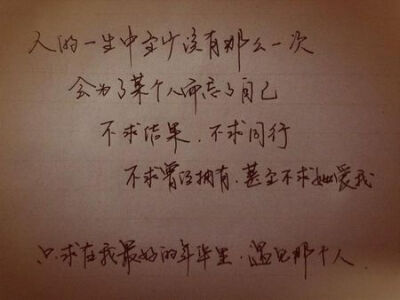 人的一生中至少没有那么一次
会为了某个人而忘了自己
不求结果．不求同行
不求曾经拥有．甚至不求她爱我
只求在我最好的年华里．遇见那个人．